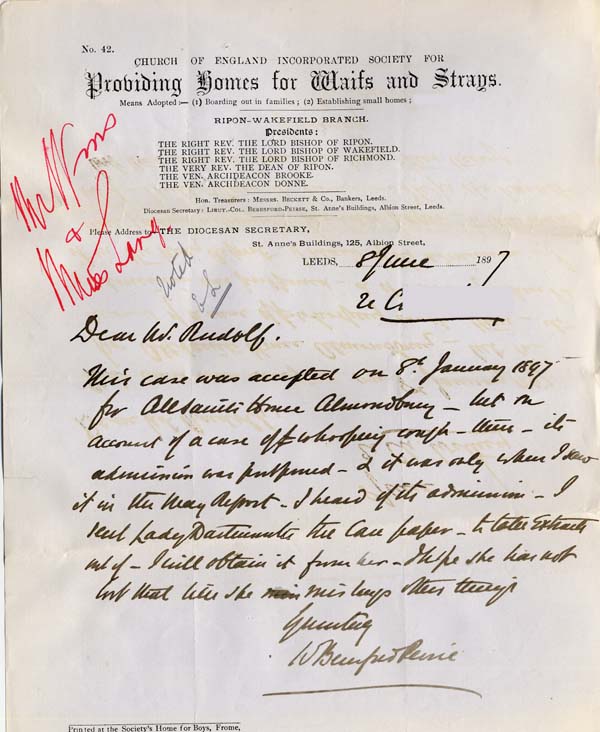 No. 42.
CHURCH OF ENGLAND INCORPORATED SOCIETY FOR
Providing Homes for Waifs and Strays.
Means Adopted:— (1) Boarding out in families; (2) Establishing small homes;
RIPON-WAKEFIELD BRANCH.
Presidents:
THE RIGHT REV. THE LORD BISHOP OF RIPON.
THE RIGHT REV. THE LORD BISHOP OF WAKEFIELD.
THE RIGHT REV. THE LORD BISHOP OF RICHMOND.
THE VERY REV. THE DEAN OF RIPON.
THE VEN. ARCHDEACON BROOKE.
THE VEN. ARCHDEACON DONNE.
Hon. Treasurers: MESSRS. BECKETT & Co., Bankers, Leeds.
Diocesan Secretary: LIEUT.-COL. BERESFORD-PEIRSE, St. Anne's Buildings, Albion Street, Leeds.
Please Address to—THE DIOCESAN SECRETARY,
St. Anne's Buildings, 125, Albion Street,
LEEDS, 8 June 1897
Mr Wms
&
Miss Lang.
noted
Dear Mr. Rudolf.
This case was accepted on 8th January 1897
for All Saints Home Almondbury – but on
account of a case of whooping cough – there – its
admission was postponed – & it was only when I saw
it in the May Report – I heard of its admission – I
sent Lady Dartmouth the Case paper – to take Extracts
out of – I will obtain it from her – I hope she has not
lost that like she mislays other things
W Beresford Peirse
Printed at the Society's Home for Boys, Frome,